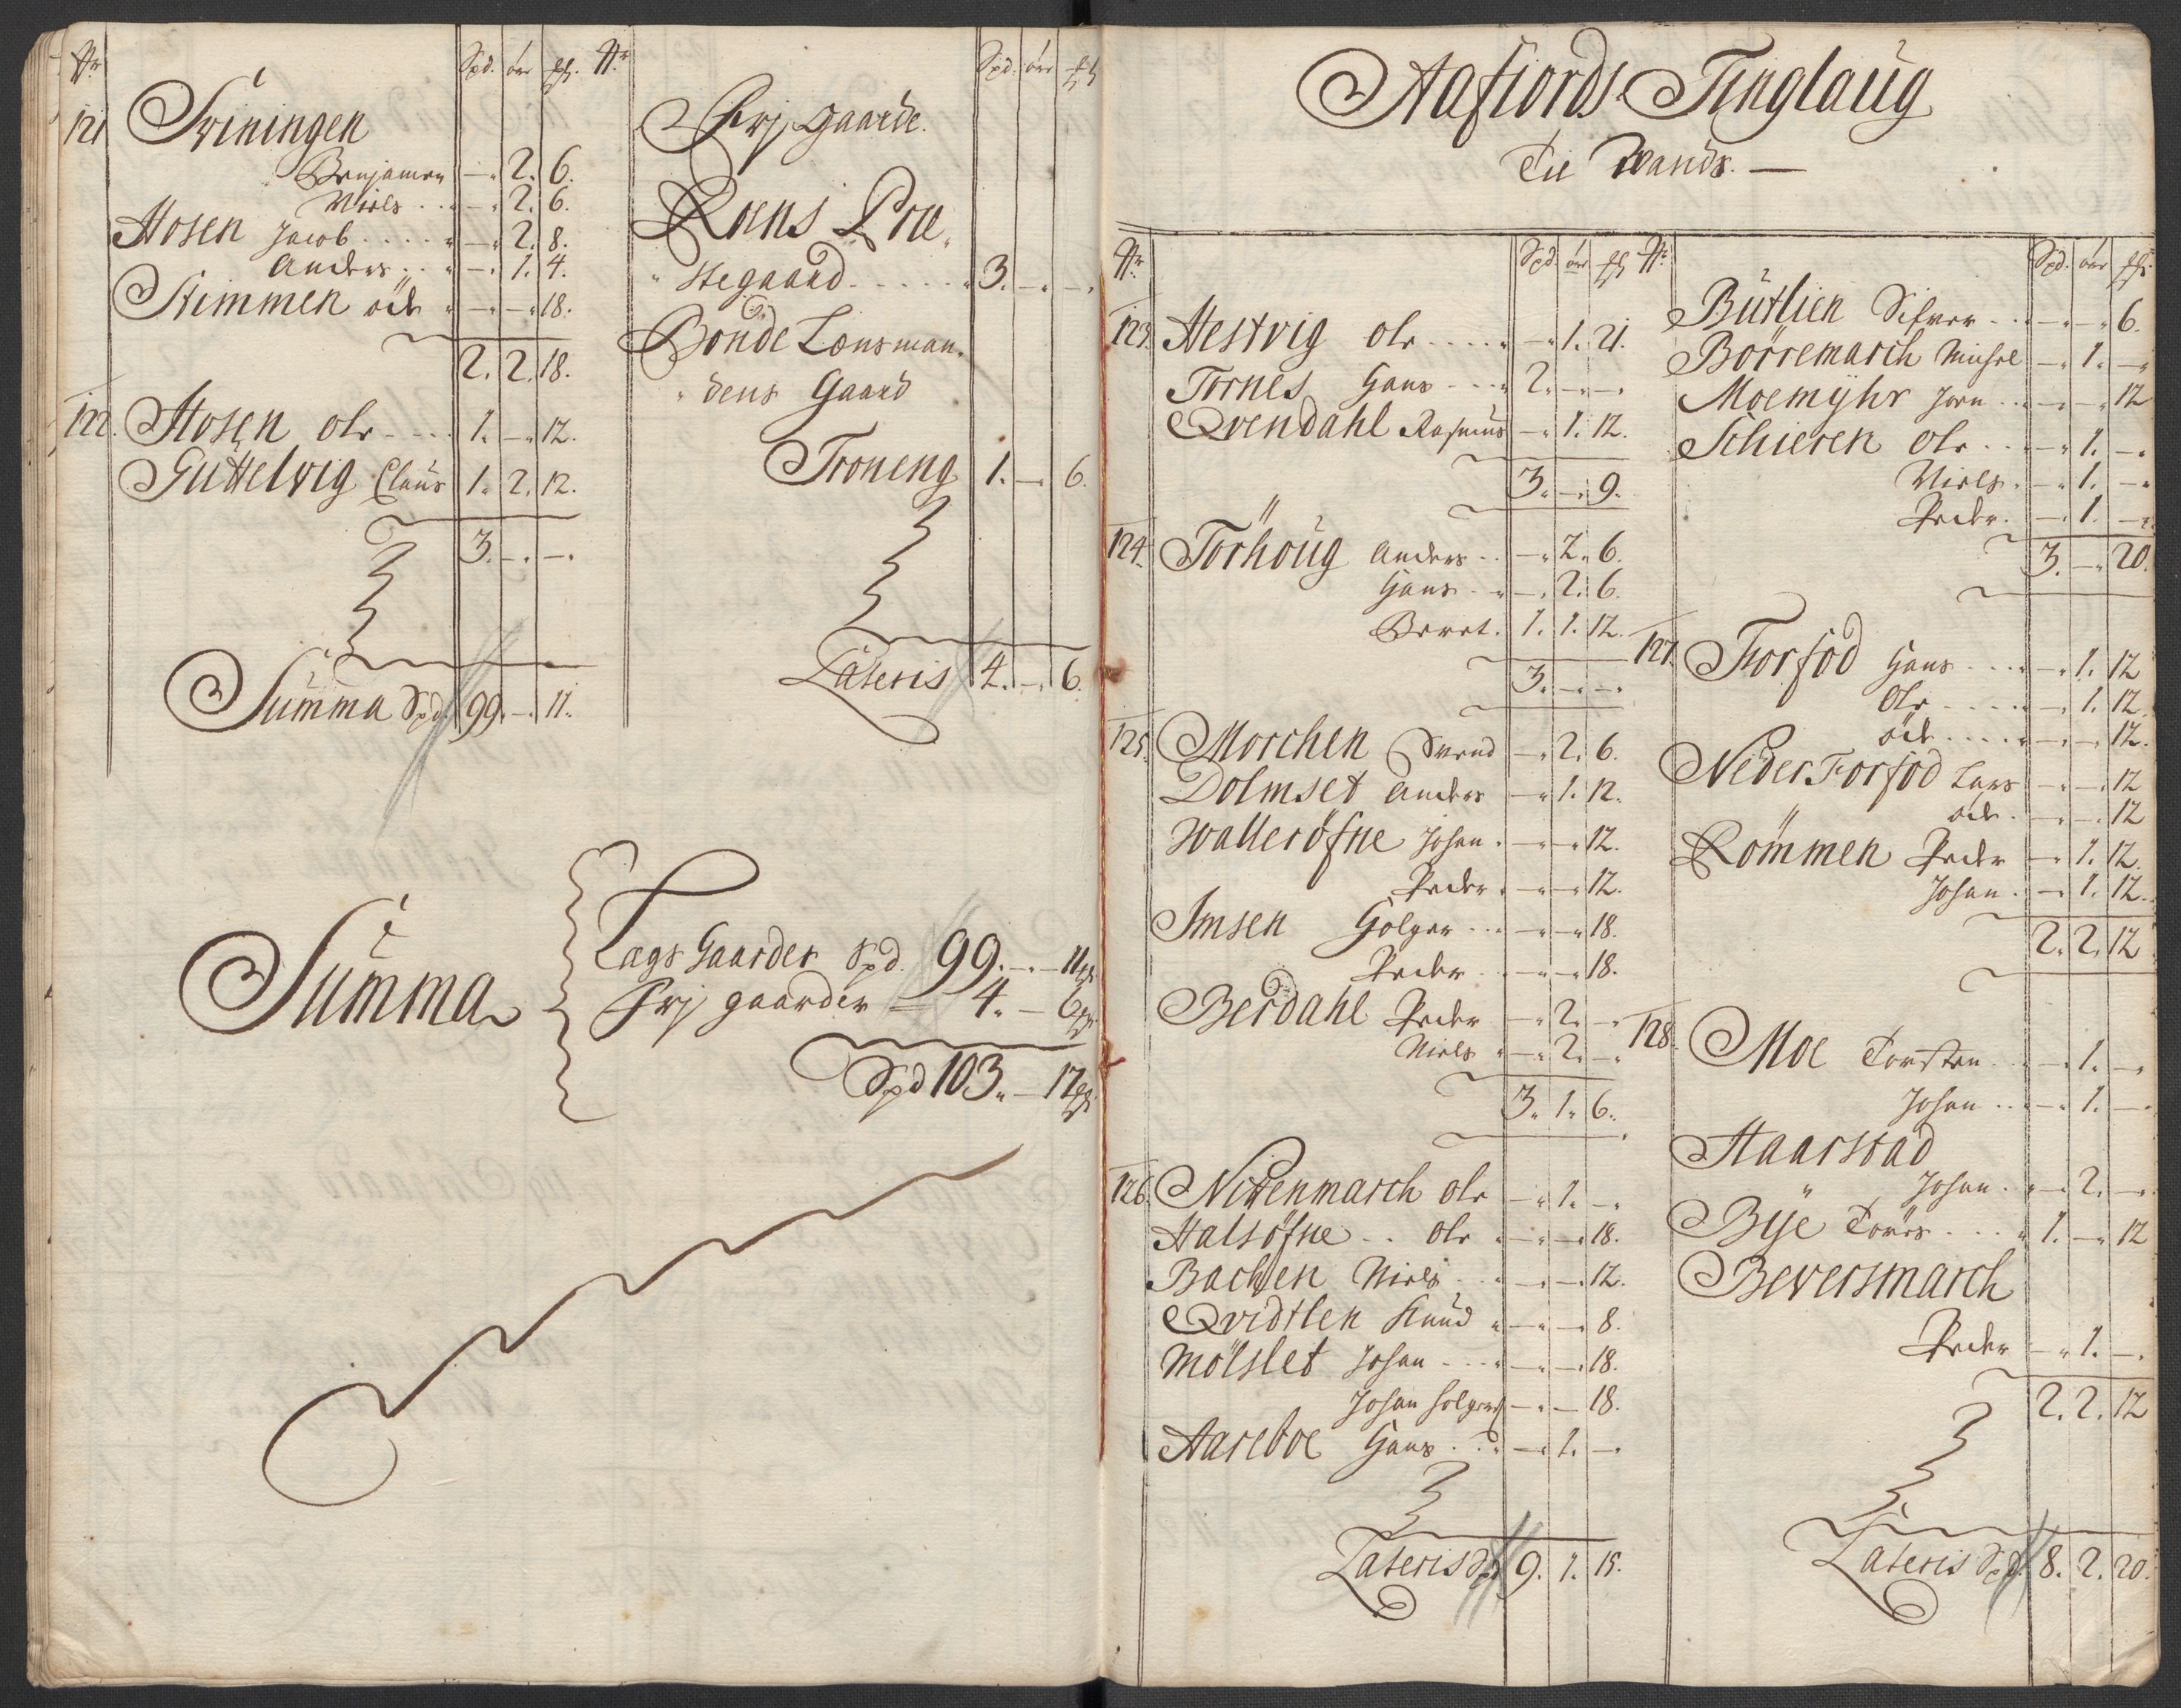 Nr Spd. ört ß.
121 Sviningen
Benjamen — 2. 6.
Niels — 2. 6.
Hosen Jacob — 2. 8.
Anders — 1. 4.
Skimmen öde — — 18.
2. 2. 18.
122. Hosen Ole 1. — 12.
Guttelvig Claus 1. 2. 12.
3. — —
Summa Spd. 99. — 11.
Nr Spd. ört ß
Frj gaarde.
Roens Præ
stegaard 3. — —
Bonde Lensman
dens Gaard
Troneng 1. — 6.
Lateris 4. — 6.
Summa
Lægs Gaarder Spd. 99. — 11 ß
Frj gaarder 4. — 6 ß
Spd 103. — 17 ß
Aafiords Tinglaug
Til Lands. —
Nr Spd. ört ß
123. Hestvig Ole — 1. 21.
Tornes Hans 2. — —
Qvendahl Rasmus — 1. 12.
3. — 9.
124. Törhoug Anders — 2. 6.
Hans — 2. 6.
Beret. 1. 1. 12.
3. — —
125. Morchen Svend — 2. 6.
Dolmset Anders — 1. 12.
Walleröfne Johan — — 12.
Peder — — 12.
Imsen Holger — — 18.
Peder — — 18.
Berdahl Peder — 2. —
Niels — 2. —
3. 1. 6.
126. Nittenmarch Ole — 1. —
Halsöfne Ole — — 18.
Bachen Niels — — 12.
Qvidtlen Knud — — 8.
Mölslet Johan — — 18.
Johan Holgers — — 18.
Aareboe Hans — 1. —
Lateris Spd 9. 1. 15.
Nr Spd. ört ß.
Butlien Sifver — — 6.
Börremarch Michel — 1. —
Moemyhr Jorn — — 12
Schieren Ole — 1. —
Niels — 1. —
Peder — 1. —
3. — 20.
127. Forfod Hans — 1. 12
Ole — 1. 12.
öde — — 12.
Neder Forfod Lars — — 12
öde — — 12
Römmen Peder — 1. 12.
Johan — 1. 12.
2. 2. 12
128. Moe Torsten — 1. —
Johan — 1. —
Haarstad
Johan — 2. —
Bÿe Tores 1. — 12
Beversmarch
Peder — 1. —
2. 2. 12
Lateris Spd. 8. 2. 20.